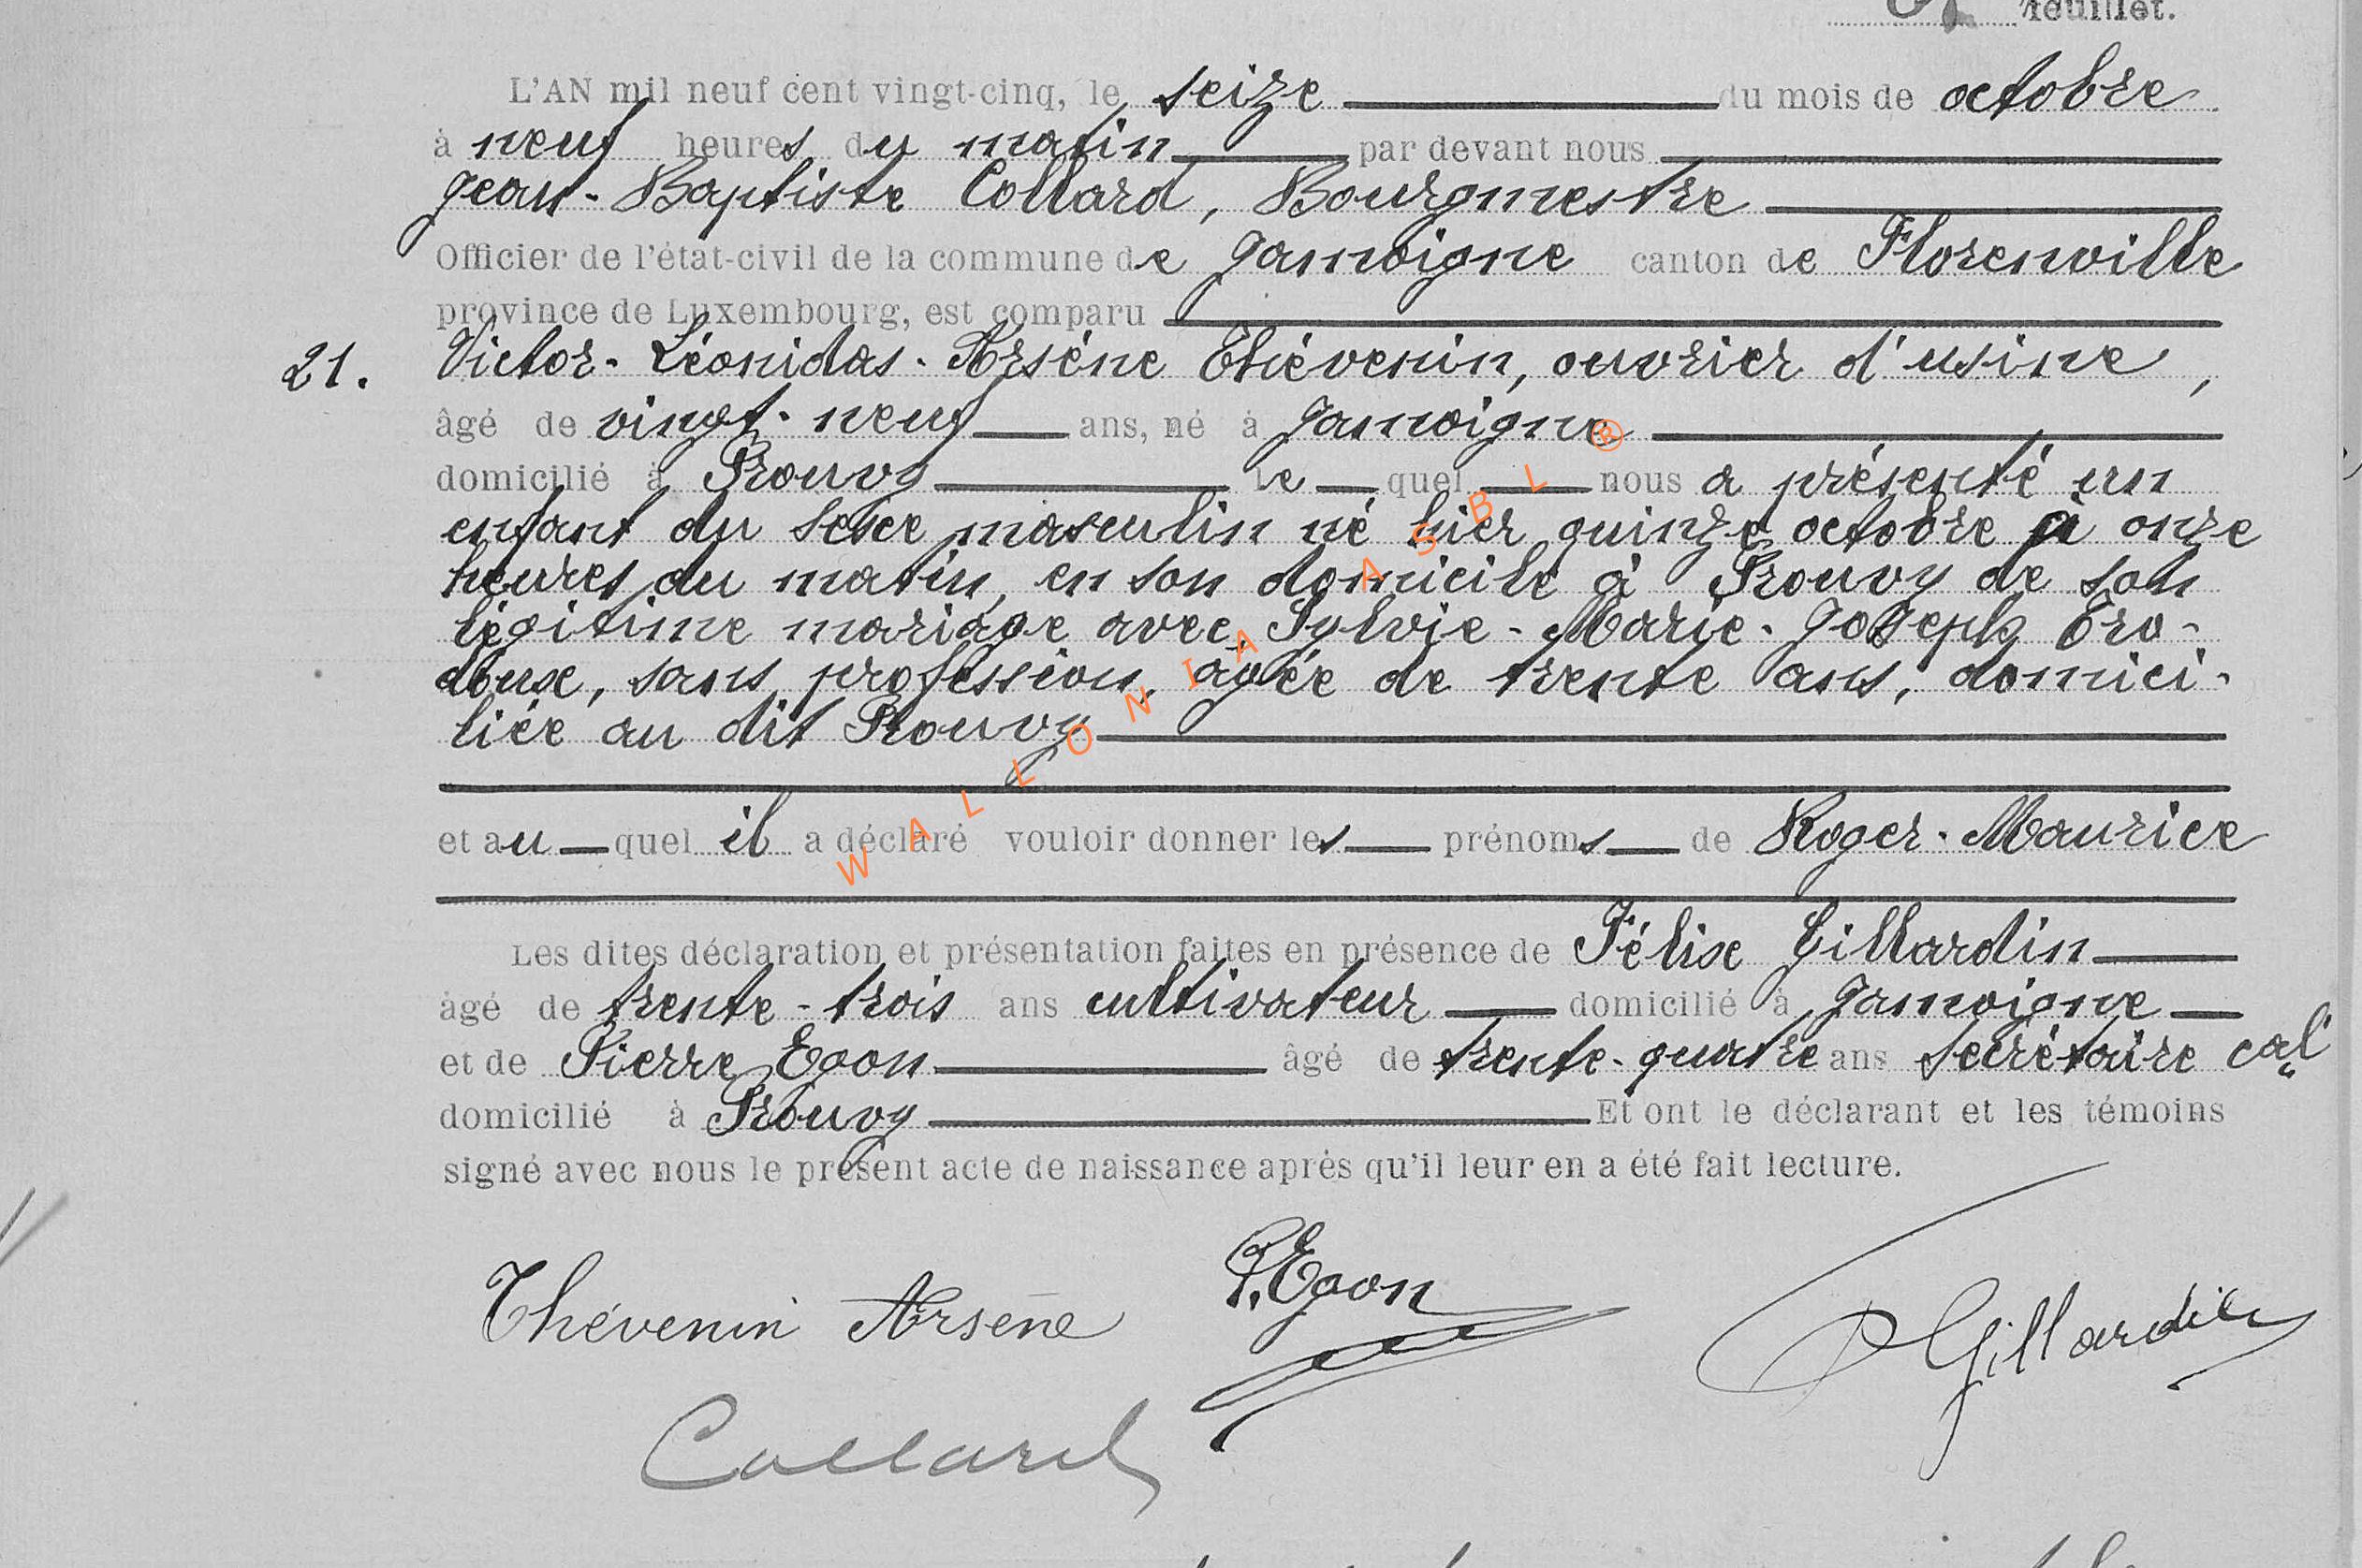 feuillet.
L'AN mil neuf cent vingt-cinq, le seize du mois de octobre
à neuf heures du matin par devant nous
Jean-Baptiste Collard, Bourgmestre
Officier de l'état-civil de la commune de Jamoigne canton de Florenville
province de Luxembourg, est comparu
21. Victor-Léonidas-Arsène Thévenin, ouvrier d'usine,
âgé de vingt-neuf ans, né à Jamoigne
domicilié à Prouvy le quel nous a présenté un
enfant du sexe masculin né hier quinze octobre à onze
heures du matin, en son domicile à Prouvy de son
légitime mariage avec Sylvie-Marie-Joseph
sans profession, agée de trente ans, domici-
liée au dit Prouvy
et au quel il a déclaré vouloir donner les prénoms de Roger-Maurice
Les dites déclaration et présentation faites en présence de Félix Gillardin
âgé de trente-trois ans cultivateur domicilié à Jamoigne
et de Pierre Egon âgé de trente-quatre ans secrétaire cal
domicilié à Prouvy Et ont le déclarant et les témoins
signé avec nous le présent acte de naissance après qu'il leur en a été fait lecture.
Thévenin Arsène P. Egon Gillardin
Collard
WALLONIA ASBL ®